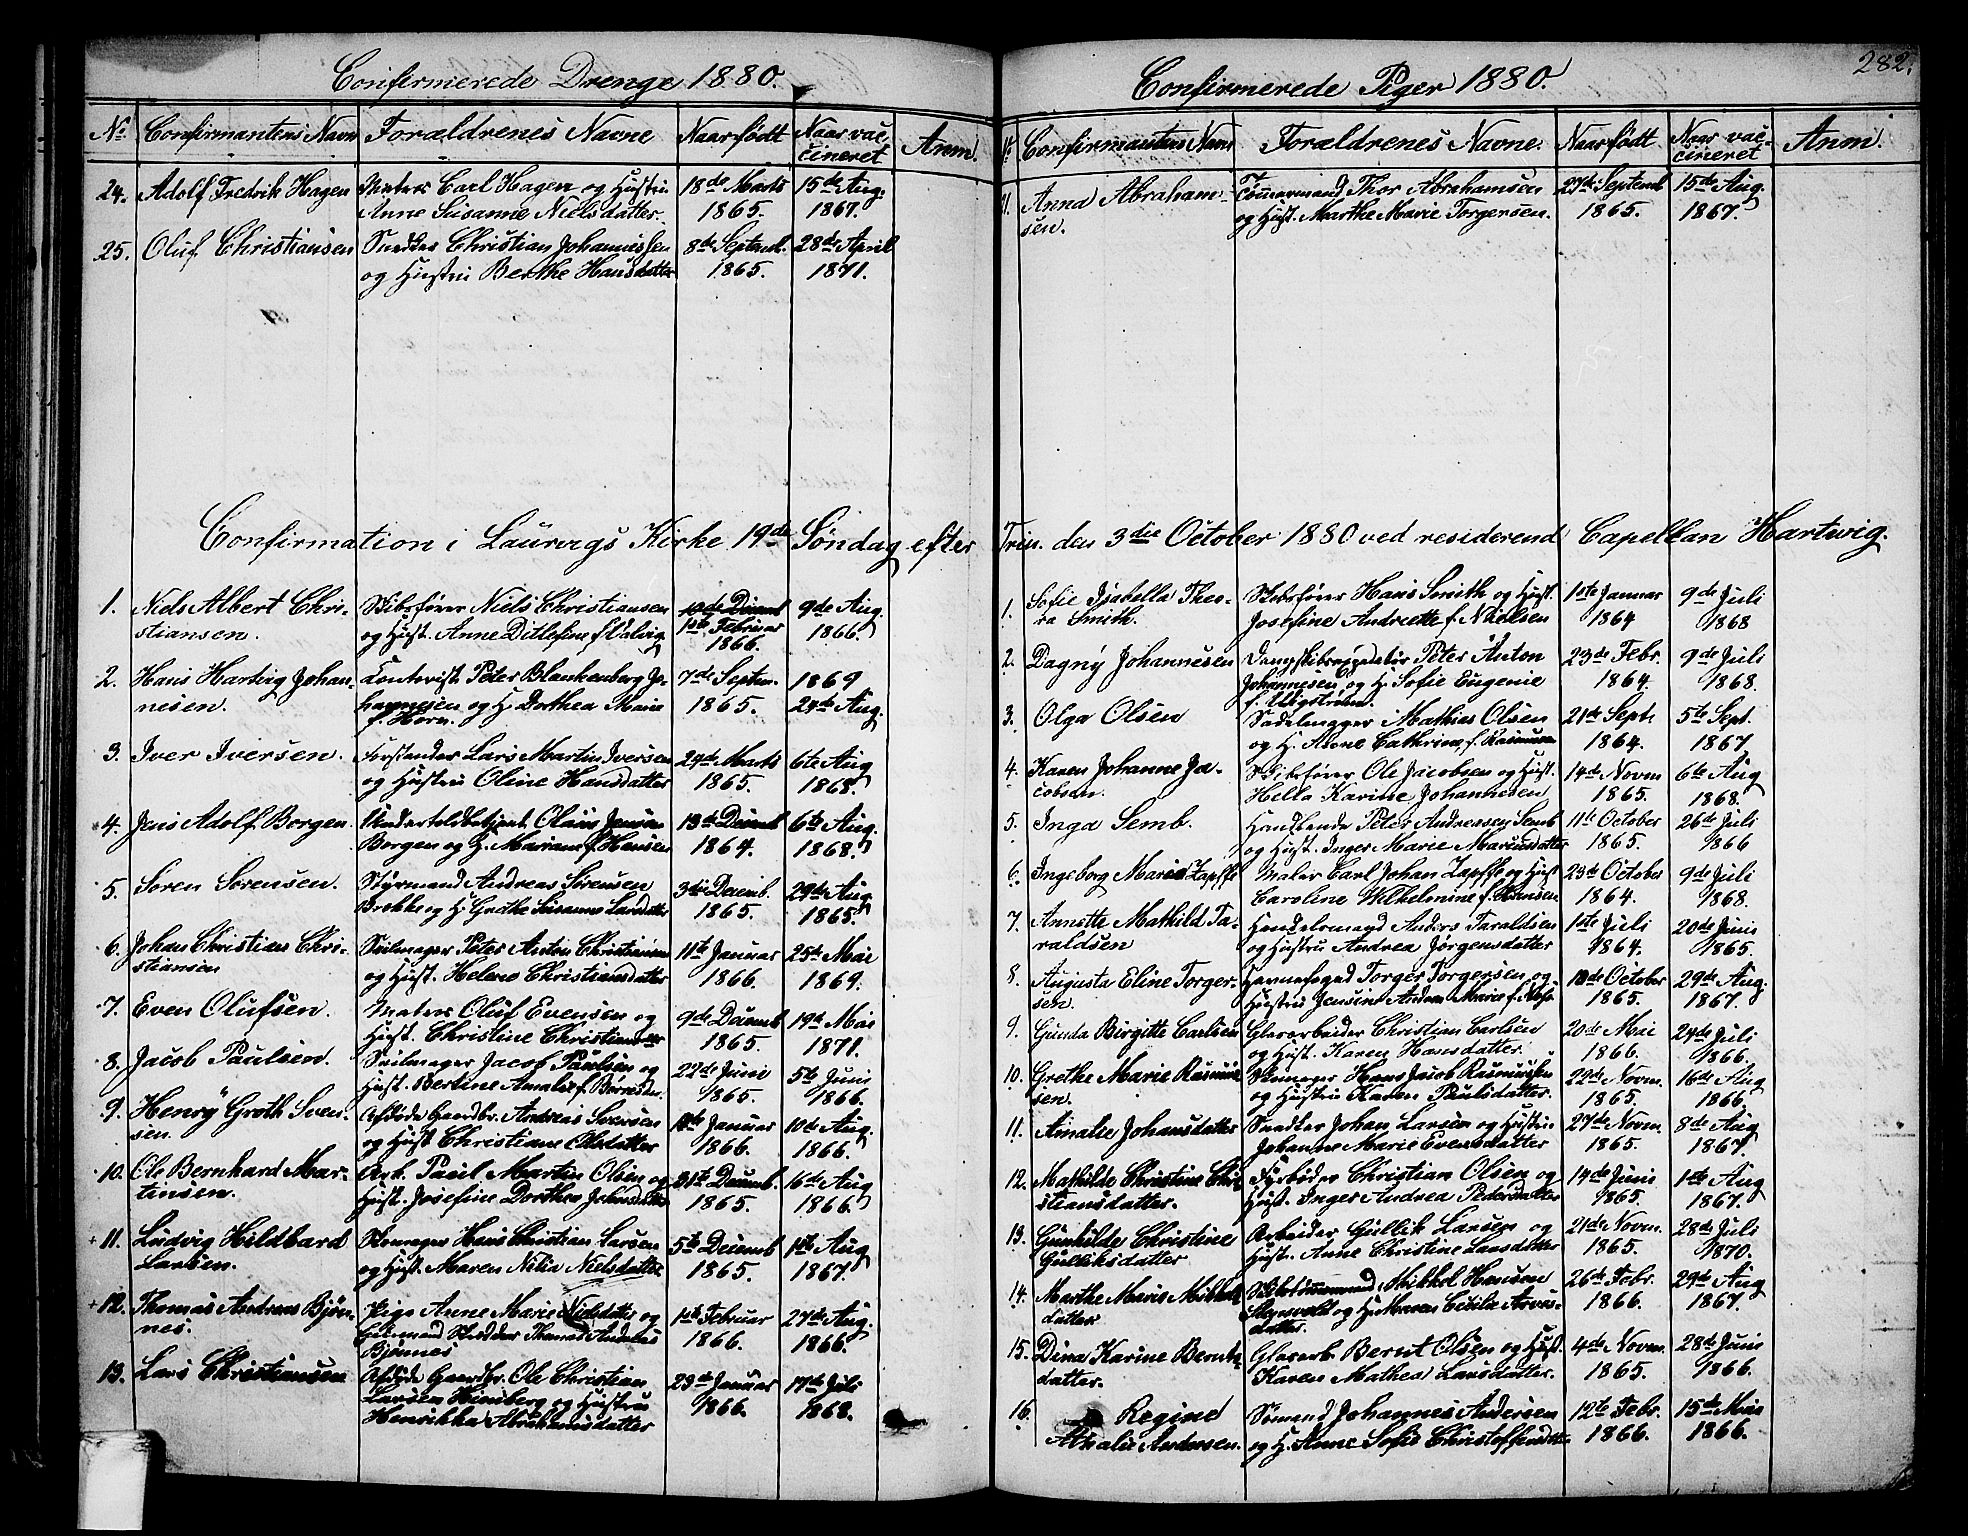 Confirmerede Drenge 1880.
No Confirmantens Navn Forældrenes Navne Naar født Naar vac-
cineret Anm.
24. Adolf Fredrik Hagen Maters Carl Hagen og Hustru 18de Marts 15de Aug.
Anne Susanne Nielsdatter. 1865. 1867.
25. Oluf Christiansen Snedker Christian Johannessen 8de Septemb. 28de April
og Hustru Berthe Hansdatter 1865. 1871.
Confirmation i Laurvigs Kirke 19de Søndag efter
1. Niels Albert Chri- Skibsfører Niels Christiansen 10de Decemb 9de Aug.
stiansen. og Hust. Anne Ditlefine f. Dalvig 1ste Februar 1866.
1866.
2. Hans Hartvig Johan- Contorist Peder Blankenberg Jo- 7de Septem. 1869
nesen. hannesen og H. Dorthea Maria 1865. 24de Aug.
f. Horn.
3. Iver Iversen. Forstander Lars Martin Iversen 24de Marts 6te Aug
og Hustru Oline Hansdatter 1865. 1868.
4. Jens Adolf Borgen. Undertoldbetjent Olaus Jensen 13de Decemb 6te Aug.
Borgen og H. Mariane f. Hansen 1864. 1868.
5. Søren Sørensen. Styrmand Andreas Sørensen 3die Decemb. 29de Aug.
Brekke og H. Grethe Susanne Larsdatter 1865. 1865.
6. Johan Christian Chri- Seilmager Peter Anton Christiansen 11te Januar 25de Mai
stiansen og Hust. Helene Christiansdatter 1866. 1869.
7. Even Olufsen. Maters Oluf Evensen og 9de Decemb 19de Mai
Hust. Christine Christiansen 1865. 1871.
8. Jacob Paulsen. Seilmager Jacob Paulsen og 22de Juni 5te Juni
Hust. Bertine Amalie f. Børresen. 1865. 1866.
9. Henry Groth Sven- Afdøde Gaardbr. Andreas Svensen Januar 10de Aug.
sen. og Hust Christiane Olsdatter 1866. 1866.
10. Ole Bernhard Mar- Arb. Paul Martin Olsen og 31te Decemb. 16de Aug
tinsen. Hust. Josefine Dorthea Johnsdatter 1865. 1866.
11. Ludvig Hildbard Skomager Hans Christian Larsen 5te Decemb 1ste Aug
Larsen. og Hust. Maren Nilia Nielsdatter 1865. 1867.
12. Thomas Andreas Bjøn- Pige Anne Marie Nielsdatter og 1ste Februar 27de Aug.
nes. Thomas Andreas 1866. 1866.
Bjønnes
13. Lars Christiansen Afdøde Gaardbr. Ole Christian 23de Januar 17de Juli
Larsen Himberg og Hustru 1866. 1868.
Henrikka Abrahamsdatter
282.
Confirmerede Piger 1880.
No Confirmantens Navn Forældrenes Navne. Naar født Naar vac-
cineret Anm.
21. Anna Abraham- Tømmermand Thor Abrahamsen 27de Septemb 15de Aug.
sen. og Hust. Marthe Marie Torgersen. 1865. 1867.
Trin. den 3die October 1880 ved residerend Capellan Hartwig.
1. Sofie Isabella Theo- Skibsfører Hans Smith og Hust. 1ste Januar 9de Juli
ra Smith. Josefine Andriette f. Nielsen 1864 1868
2. Dagny Johannesen Dampskibsexpeditør Peter Anton 23de Febr. 9de Juli
Johannesen og H. Sofie Eugenie 1864. 1868.
3. Olga Olsen Sadelmager Mathias Olsen 21de Septr 5te Sept.
og H. Anne Cathrine f. Rasmusen 1864. 1867.
4. Karen Johanne Ja- Skibsfører Ole Jacobsen og Hust. 14de Novem 6te Aug
cobsen. Hella Karine Johannesen 1865. 1868.
5. Inga Semb. Handlende Peter Andreasen Semb 11te October 26de Juli
og Hust. Inger Marie Mariusdatter 1865. 1866
6. Ingeborg Marie Zapffe Maler Carl Johan Zapffe og Hust 23de October 9de Juli
Caroline Wilhelmine f. Hansen 1864. 1868.
7. Annette Mathild Ta- Handelsmand Anders Taraldsen 1ste Juli 20de Juni
raldsen og Hustru Andrea Jørgensdatter 1864. 1865.
8. Augusta Eline Torger- Havnefoged Torger Torgersen og 18de October 29de Aug.
sen. Hustru Jensine Andrea Marie f. 1865. 1867.
9. Gunda Birgitte Carlsen Glasarbeider Christian Carlsen 20de Mai 24de Juli
og Hust. Karen Hansdatter. 1866. 1866.
10. Grethe Marie Rasmus- Skomager Hans Jacob Rasmussen 22de Novem. 16de Aug
sen. og Hustru Karen Poulsdatter. 1865. 1866.
11. Amalie Johansdatter Snedker Johan Larsen og Hustru 27de Novem. 8de Aug
Johanne Marie Evensdatter 1865. 1867.
12. Mathilde Christine Chri- Fyrbøder Christian Olsen og 14de Juni 1ste Aug
stiansdatter. Hust. Inger Andrea Pedersdatter 1865. 1867.
13. Gunhilde Christine Arbeider Gullik Larsen og 21de Novem. 28de Juli
Gulliksdatter Hust. Anne Christine Larsdatter 1865. 1870.
14. Marthe Marie Mikkels- Skibstømmermand Mikkel Hansen 26de Febr. 29de Aug
datter. og Hu Maren Cecilie Arves- 1866. 1867.
datter.
15. Dina Karine Bernts- Glasarb. Bernt Olsen og Hust. 4de Novem. 28de Juni
datter. Karen Mathea Larsdatter. 1865. 1866.
16. Regine Sømand Johannes Andersen 12te Febr. 15de Mai
Athalie Andersen. og H. Anne Sofie Christoffersdatter 1866. 1866.